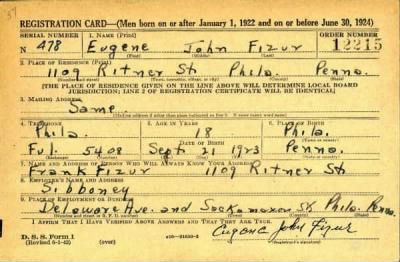 REGISTRATION CARD—(Men born on or after January 1, 1922 and on or before June 30, 1924)
SERIAL NUMBER 1. NAME (Print) ORDER NUMBER
N 478 Eugene John Fizur 12215
(First) (Middle) (Last)
2. PLACE OF RESIDENCE (Print)
1109 Ritner St. Phila. Penna.
(Number and street) (Town, township, village, or city) (County) (State)
[THE PLACE OF RESIDENCE GIVEN ON THE LINE ABOVE WILL DETERMINE LOCAL BOARD
JURISDICTION; LINE 2 OF REGISTRATION CERTIFICATE WILL BE IDENTICAL]
3. MAILING ADDRESS
Same
[Mailing address if other than place indicated on line 2. If same insert word same]
4. TELEPHONE 5. AGE IN YEARS 6. PLACE OF BIRTH
Phila. 18 Phila.
DATE OF BIRTH (Town or county)
Ful. 5408 Sept 21 1923 Penna.
(Exchange) (Number) (Mo.) (Day) (Yr.) (State or country)
7. NAME AND ADDRESS OF PERSON WHO WILL ALWAYS KNOW YOUR ADDRESS
Frank Fizur 1109 Ritner St.
8. EMPLOYER'S NAME AND ADDRESS
Sibboney
9. PLACE OF EMPLOYMENT OR BUSINESS
Delaware Ave. and Sockamaxon St. Phila. Penna.
(Number and street or R. F. D. number) (Town) (County) (State)
I AFFIRM THAT I HAVE VERIFIED ABOVE ANSWERS AND THAT THEY ARE TRUE.
D. S. S. Form 1 Eugene John Fizur